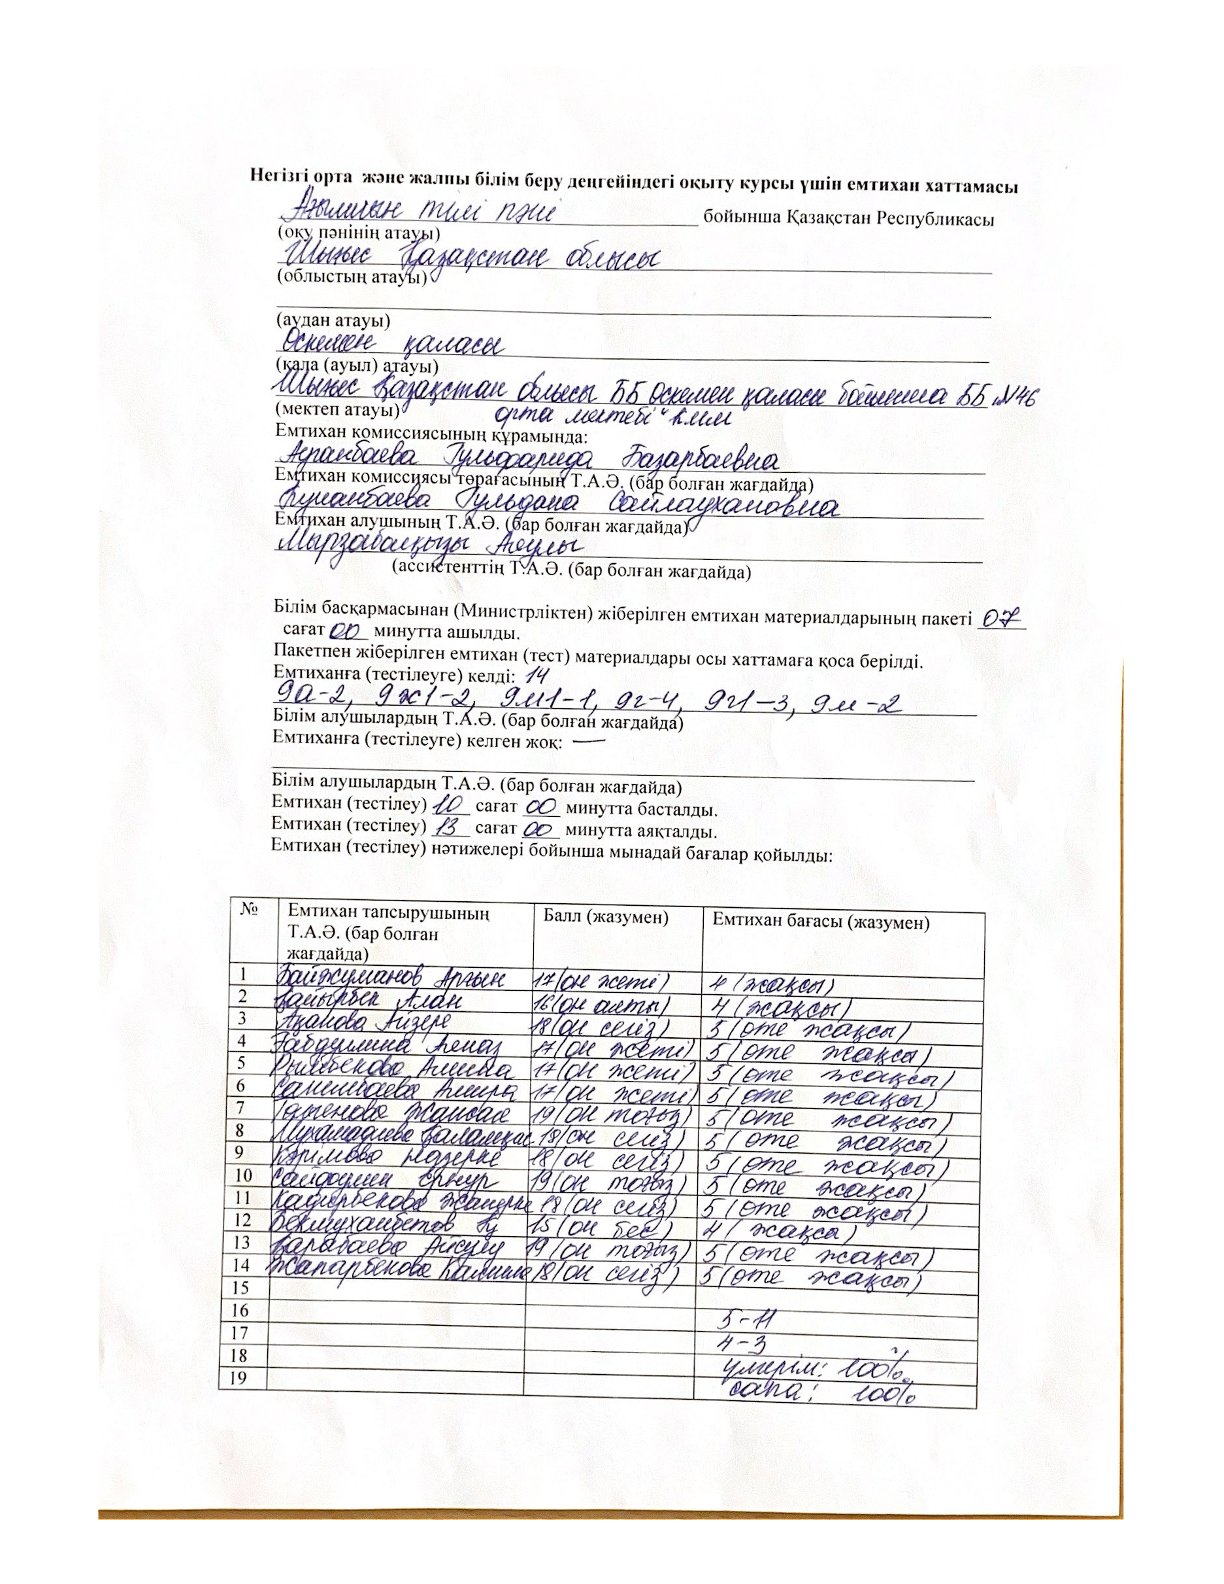 Негізгі орта және жалпы білім беру деңгейіндегі оқыту курсы үшін емтихан хаттамасы
Ағылшын тілі пәні бойынша Қазақстан Республикасы
(оқу пәнінің атауы)
Шығыс Қазақстан облысы
(облыстың атауы)
(аудан атауы)
Өскемен қаласы
(қала (ауыл) атауы)
Шығыс Қазақстан облысы ББ Өскемен қаласы бойынша ББ "№46
(мектеп атауы) орта мектебі" КММ
Емтихан комиссиясының құрамында:
Аспанбаева Гульфарида Базарбаевна
Емтихан комиссиясы төрағасының Т.А.Ә. (бар болған жағдайда)
Кунанбаева Гульдана Сайлаухановна
Емтихан алушының Т.А.Ә. (бар болған жағдайда)
Мырзабалқызы Аяулы
(ассистенттің Т.А.Ә. (бар болған жағдайда)
Білім басқармасынан (Министрліктен) жіберілген емтихан материалдарының пакеті 07
сағат 00 минутта ашылды.
Пакетпен жіберілген емтихан (тест) материалдары осы хаттамаға қоса берілді.
Емтиханға (тестілеуге) келді: 14
9а-2, 9ж1-2, 9м1-1, 9г-4, 9г1-3, 9м-2
Білім алушылардың Т.А.Ә. (бар болған жағдайда)
Емтиханға (тестілеуге) келген жоқ: —
Білім алушылардың Т.А.Ә. (бар болған жағдайда)
Емтихан (тестілеу) 10 сағат 00 минутта басталды.
Емтихан (тестілеу) 13 сағат 00 минутта аяқталды.
Емтихан (тестілеу) нәтижелері бойынша мынадай бағалар қойылды:
№ Емтихан тапсырушының Т.А.Ә. (бар болған жағдайда) Балл (жазумен) Емтихан бағасы (жазумен)
1 Байжуманов Арғын 17 (он жеті) 4 (жақсы)
2 Қайырбек Алан 16 (он алты) 4 (жақсы)
3 Ақанова Айзере 18 (он сегіз) 5 (өте жақсы)
4 Габдуллина 17 (он жеті) 5 (өте жақсы)
5 Рымбекова 17 (он жеті) 5 (өте жақсы)
6 17 (он жеті) 5 (өте жақсы)
7 19 (он тоғыз) 5 (өте жақсы)
8 Мухамадиева Қаламқас 18 (он сегіз) 5 (өте жақсы)
9 Кәрімова Назерке 18 (он сегіз) 5 (өте жақсы)
10 Ернұр 19 (он тоғыз) 5 (өте жақсы)
11 Кадырбекова Жанерке 18 (он сегіз) 5 (өте жақсы)
12 Бекмухамбетов 15 (он бес) 4 (жақсы)
13 Қарабаева Айсұлу 19 (он тоғыз) 5 (өте жақсы)
14 Жапарбекова 18 (он сегіз) 5 (өте жақсы)
15
16 5-11
17 4-3
18 үлгерім: 100%
19 сапа: 100%